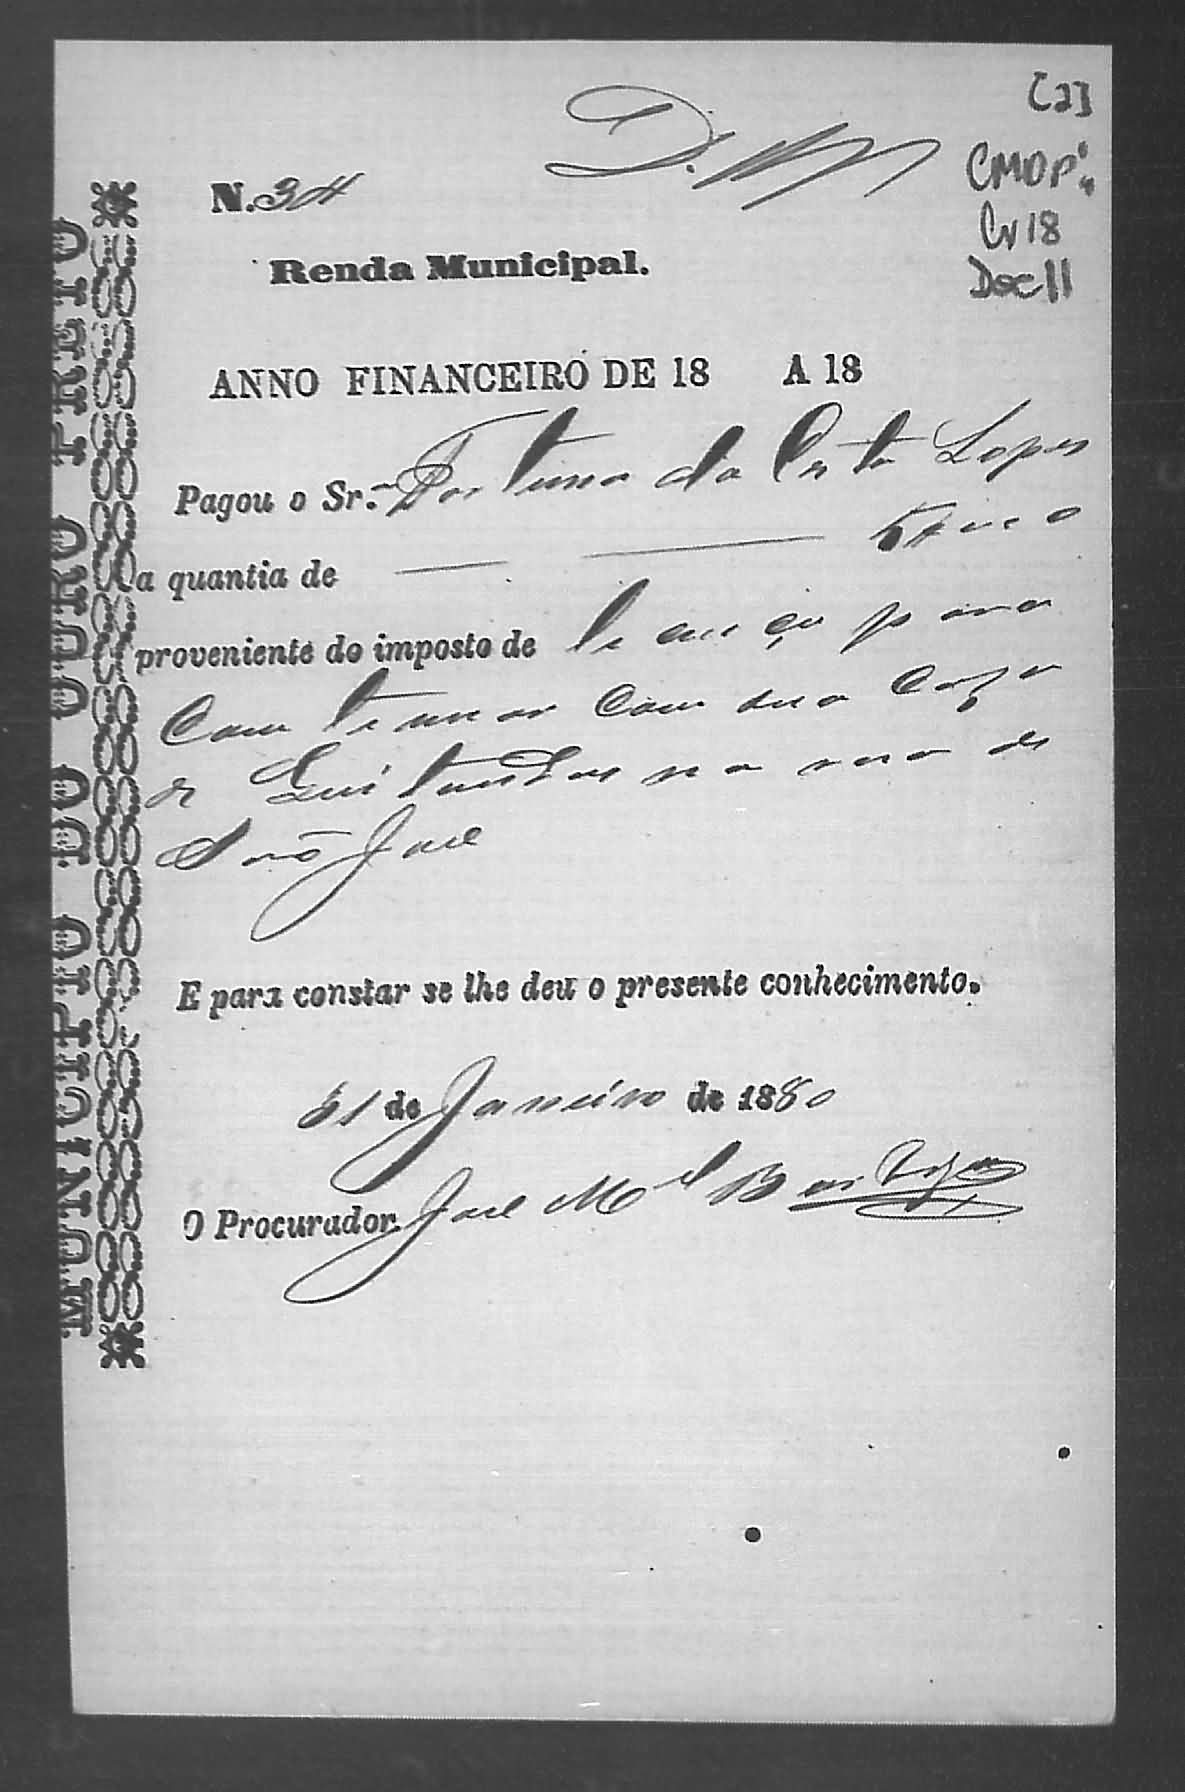 [2]
CMOP:
Cx 18
Doc 11
N. 34
Renda Municipal.
ANNO FINANCEIRO DE 18 A 18
Pagou o Sr.ª Fortuna da Costa Lopes
a quantia de
proveniente do imposto de licença para
Continuar com sua Caza
de Quitandas na rua de
São José
E para constar se lhe deu o presente conhecimento.
31 de Janeiro de 1880
O Procurador José Mel
MUNICIPIO DO OURO PRETO